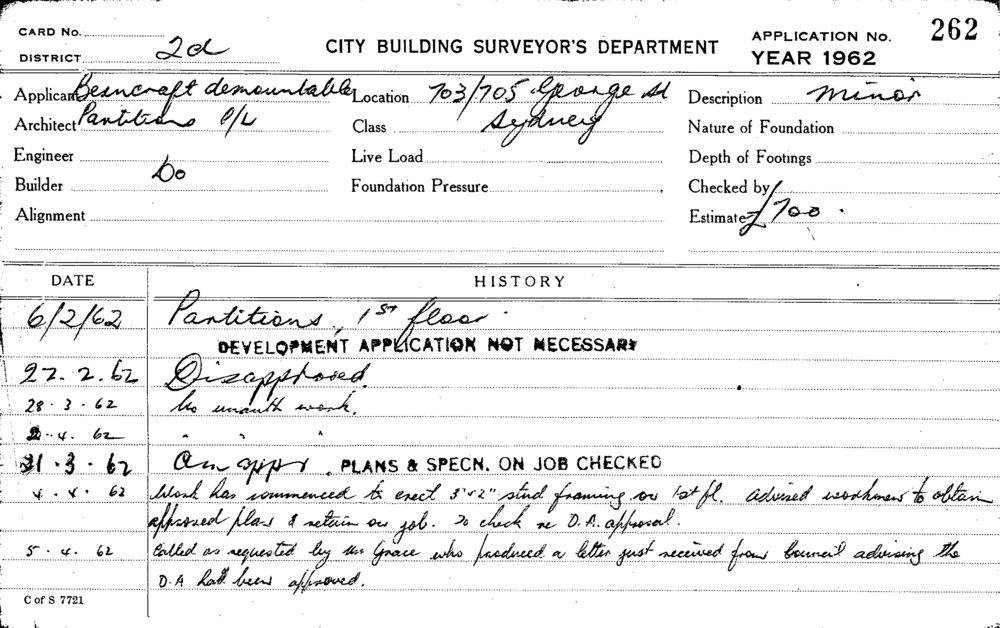 CARD No.
DISTRICT 2d
CITY BUILDING SURVEYOR'S DEPARTMENT
APPLICATION No. 262
YEAR 1962
Applicant Beancraft demountable
Location 703/705 George St
Description minor
Architect Partitions P/L
Class Sydney
Nature of Foundation
Engineer
Live Load
Depth of Footings
Builder Do
Foundation Pressure
Checked by
Alignment
Estimate £700.
DATE HISTORY
6/2/62 Partitions, 1st floor.
DEVELOPMENT APPLICATION NOT NECESSARY
27.2.62 Disapproved.
28.3.62 No unauth work.
2.4.62 " " "
31.3.62 Am appr. PLANS & SPECN. ON JOB CHECKED
4.4.62 Work has commenced to erect 3"x2" stud framing on 1st fl. advised workmen to obtain
approved plan & retain on job. To check re D.A. approval.
5.4.62 Called as requested by Mr Grace who produced a letter just received from Council advising the
D.A had been approved.
C of S 7721